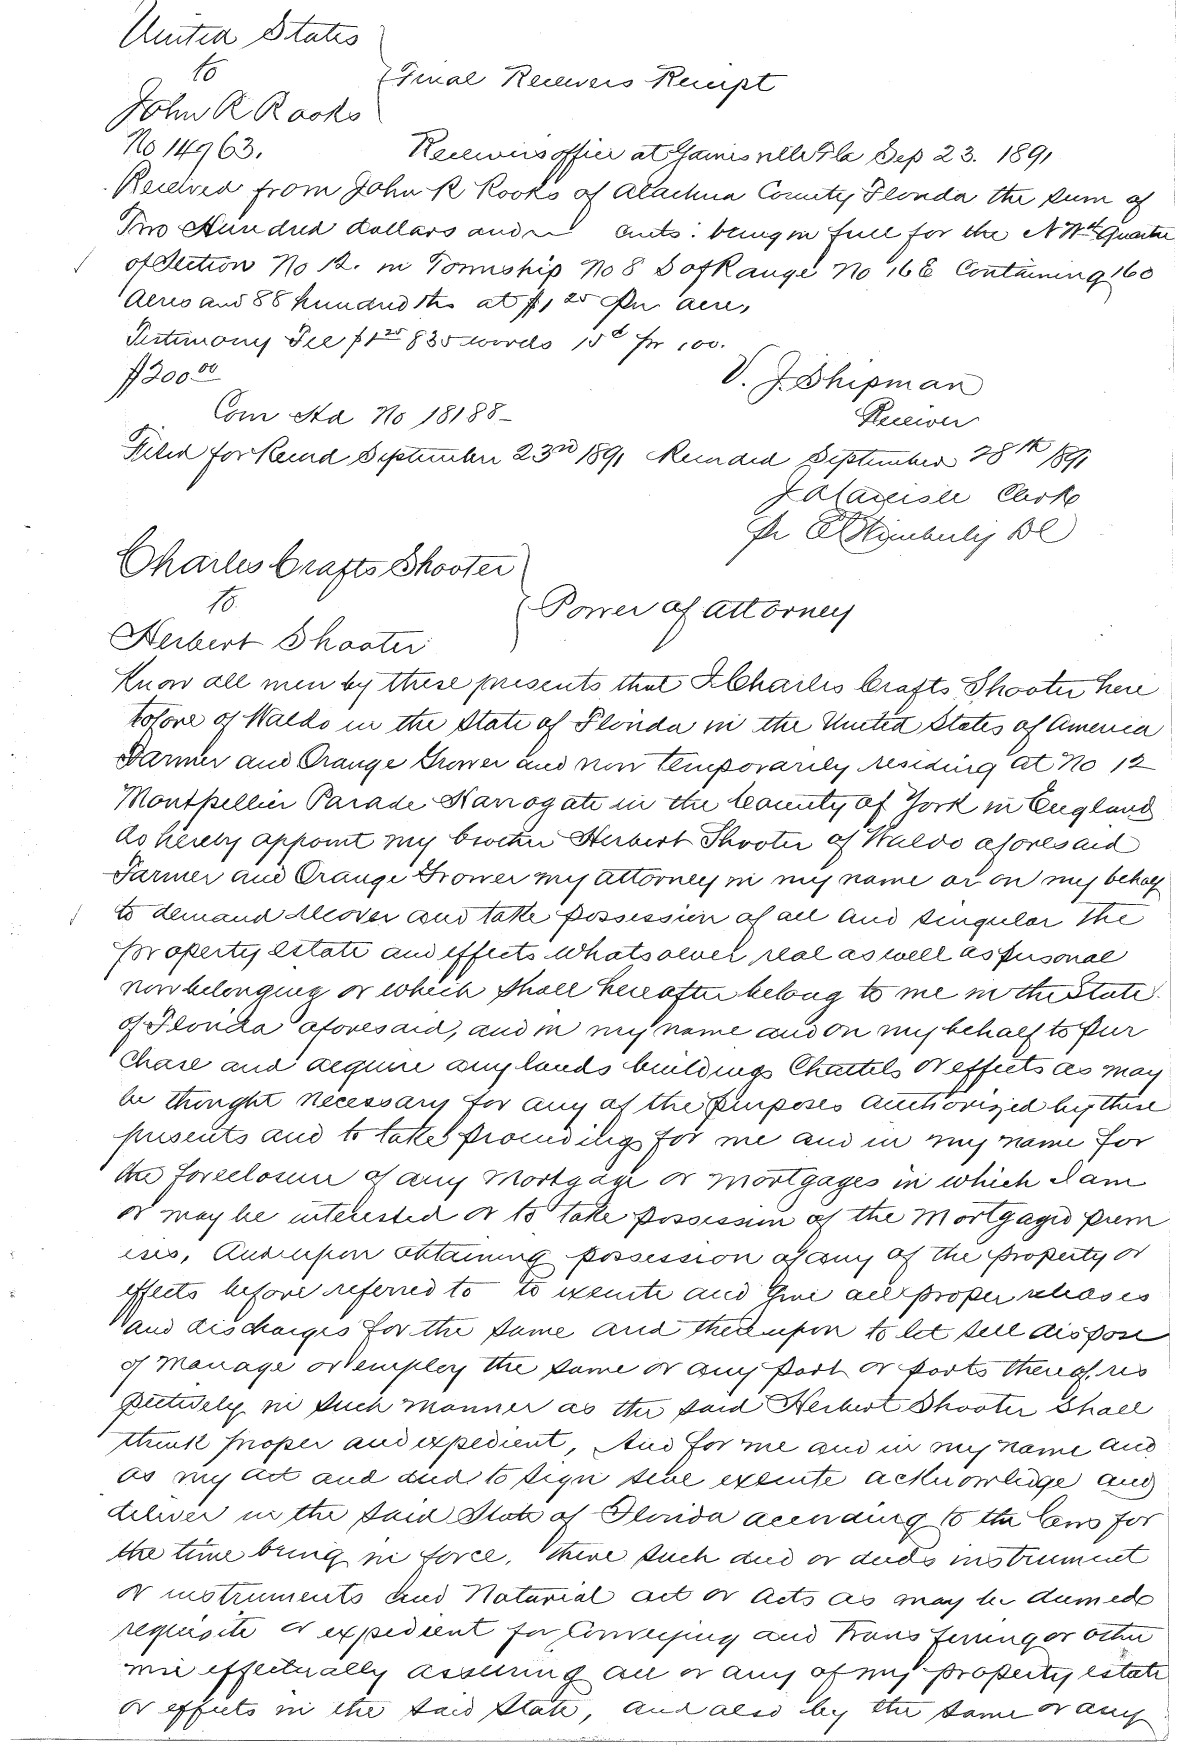 United States
to
Final Receivers Receipt
John R Rooks
No 14963. Receivers office at Gainesville Fla Sep 23. 1891
Received from John R Rooks of Alachua County Florida the sum of
Two Hundred dollars and cents: being in full for the N Wth Quarter
of Section No 12. in Township No 8 S of Range No 16 E Containing 160
Acres and 88 hundredths at $1 25 Per acre,
Testimony Fee $1 25 835 words 15c pr 100.
$200 00
V. J. Shipman
Com Hd No 18188-
Receiver
Filed for Record September 23rd 1891 Recorded September 28th 1891
J A Carlisle Clerk
Pr Wimberly DC
Charles Crafts Shooter
to
Power of attorney
Herbert Shooter
Know all men by these presents that I Charles Crafts Shooter here
tofore of Waldo in the State of Florida in the United States of America
Farmer and Orange Grower and now temporarily residing at No 12
Montpellier Parade Harrogate in the County of York in England
do hereby appoint my brother Herbert Shooter of Waldo aforesaid
Farmer and Orange Grower my attorney in my name or on my behalf
to demand recover and take possession of all and singular the
property estate and effects whatsoever real as well as personal
now belonging or which shall hereafter belong to me in the State
of Florida aforesaid, and in my name and on my behalf to pur
chase and acquire any lands buildings Chattels or effects as may
be thought necessary for any of the purposes authorized by these
presents and to take proceedings for me and in my name for
the foreclosure of any mortgage or mortgages in which I am
or may be interested or to take possession of the Mortgaged prem
ises, And upon obtaining possession of any of the property or
effects before referred to to execute and give all proper releases
and discharges for the same and thereupon to let sell dispose
of manage or employ the same or any part or parts thereof, res
pectively in such manner as the said Herbert Shooter shall
think proper and expedient, And for me and in my name and
as my act and deed to sign seal execute acknowledge and
deliver in the said State of Florida according to the laws for
the time being in force, there such deed or deeds instrument
or instruments and Notarial act or acts as may be deemed
requisite or expedient for Conveying and Transferring or other
wise effectually assuring all or any of my property estate
or effects in the said State, and also by the same or any